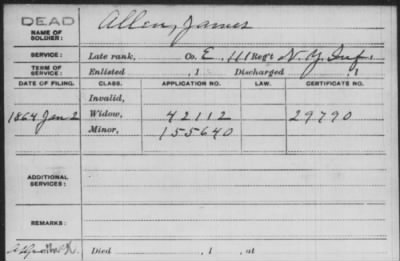 DEAD
NAME OF SOLDIER: Allen, James
SERVICE: Late rank, Co. E, 111 Reg't N. Y. Inf.
TERM OF SERVICE: Enlisted , 1 Discharged , 1
DATE OF FILING. CLASS. APPLICATION NO. LAW. CERTIFICATE NO.
Invalid,
1864 Jan 2 Widow, 42112 29790
Minor, 155640
ADDITIONAL SERVICES:
REMARKS:
Died , 1 , at